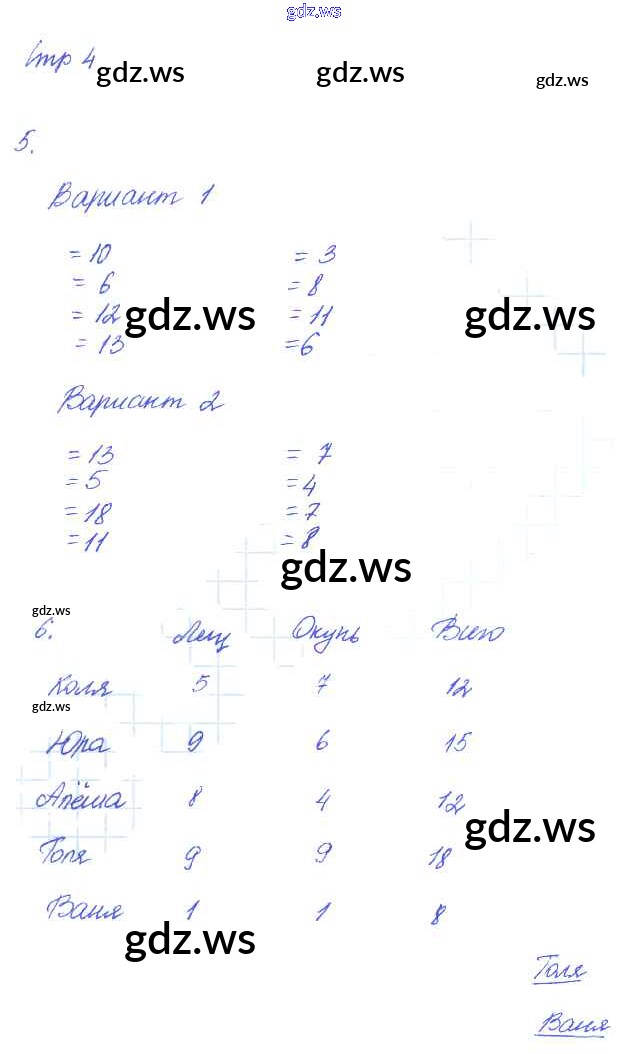 gdz.ws
Стр 4
gdz.ws gdz.ws gdz.ws
5.
Вариант 1
= 10 = 3
= 6 = 8
= 12 = 11
gdz.ws gdz.ws
= 13 = 6
Вариант 2
= 13 = 7
= 5 = 4
= 18 = 7
= 11 = 8
gdz.ws
gdz.ws
6. Лещ Окунь Всего
Коля 5 7 12
gdz.ws
Юра 9 6 15
Алёша 8 4 12
gdz.ws
Толя 9 9 18
Ваня 1 1 8
gdz.ws
Толя
Ваня